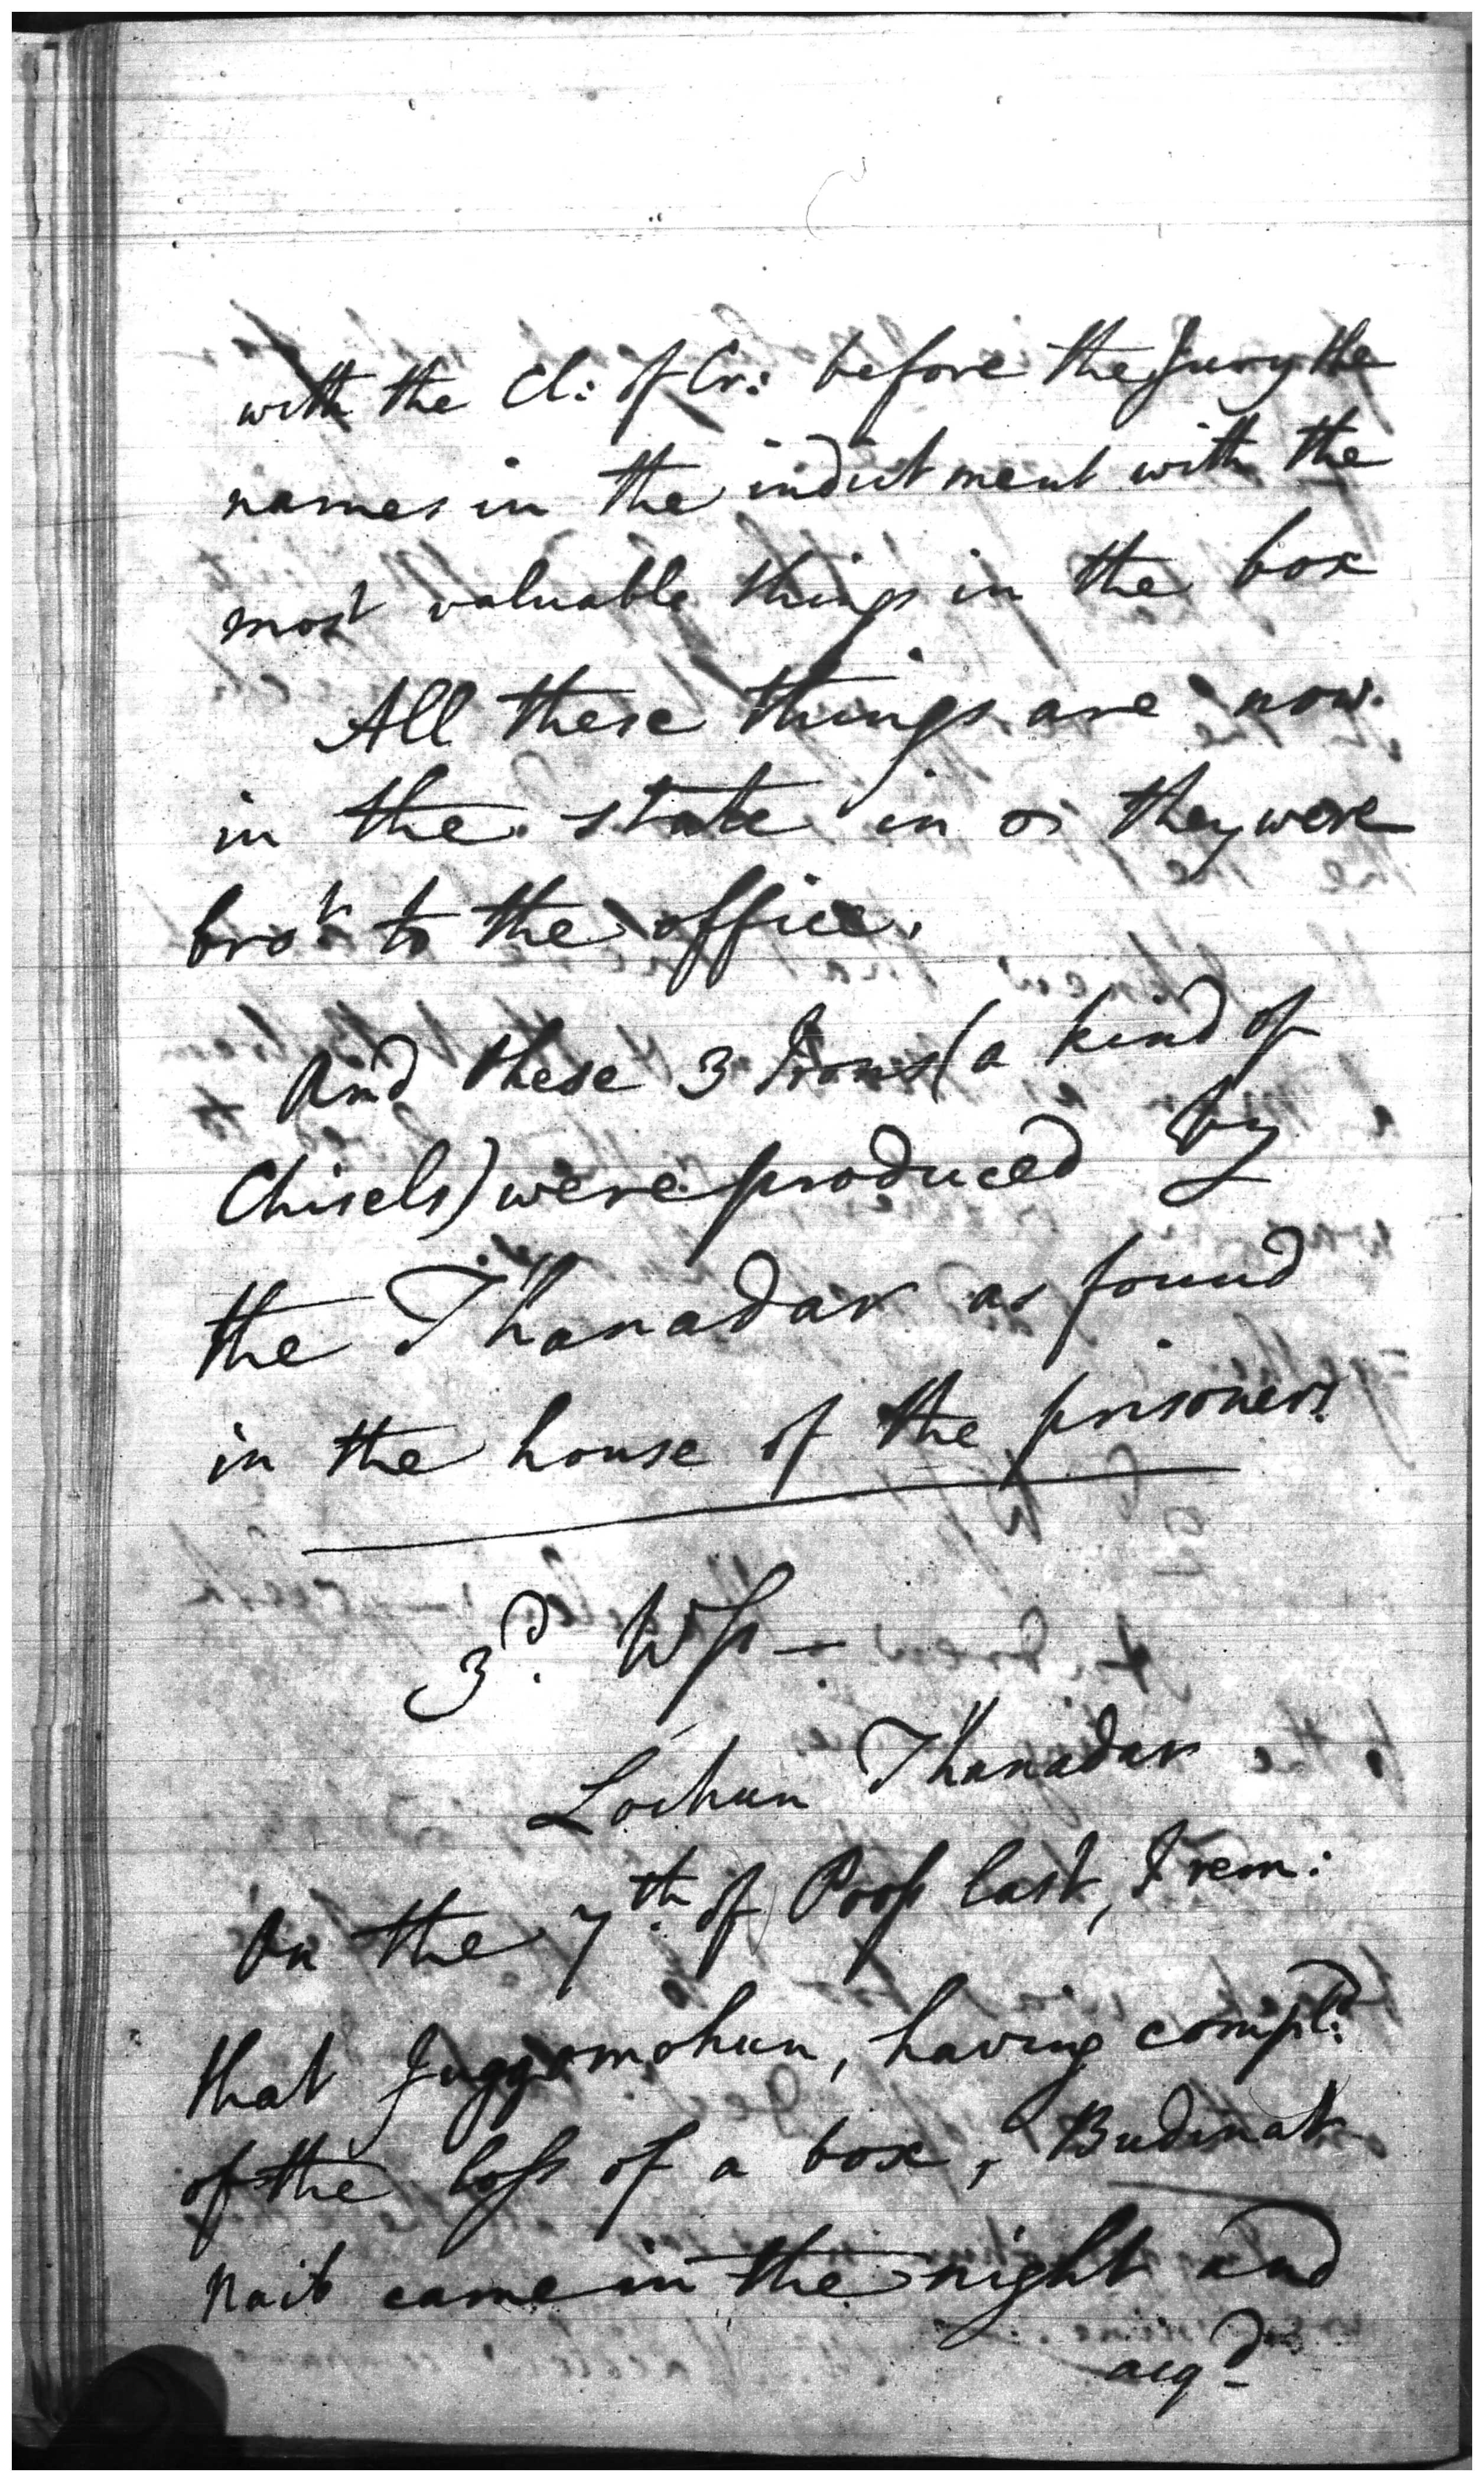 with the Cl: of Cr: before the Jury the
names in the indictment with the
most valuable things in the box
All these things are now
in the state in they were
bro.t to the office.
And these 3 Irons (a kind of
Chisels) were produced by
the Thanadar as found
in the house of the prisoners.
3.d Wss –
Lochun Thanadar
On the 7.th of Poos last, I rem:
that Juggomohun, having compl:d
of the loss of a box, Budinat
Nait came in the night and
acq.d